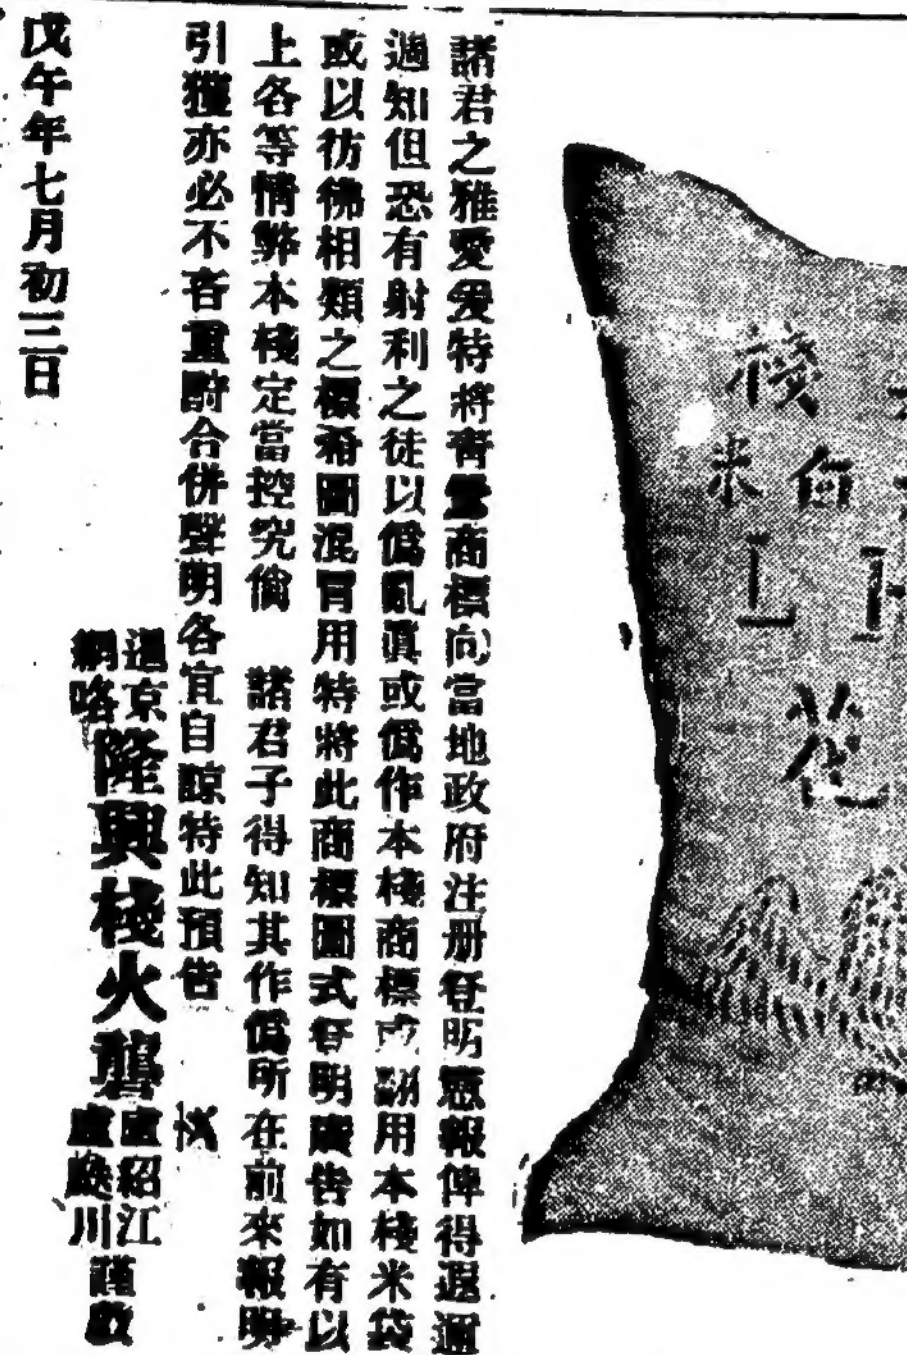 棧
白米
花
諸君之雅愛爰特將靑雲商標向當地政府注册登明憲報俾得遐邇
週知但恐有射利之徒以僞亂眞或僞作本棧商標或翻用本棧米袋
或以彷彿相類之標希圖混冐用特將此商標圖式登明廣告如有以
上各等情弊本棧定當控究倘 諸君子得知其作僞所在前來報明
引獲亦必不吝重酧合併聲明各宜自諒特此預告
暹京
網咯
隆興棧火礱
盧紹江
盧 川
謹啟
戊午年七月初三日